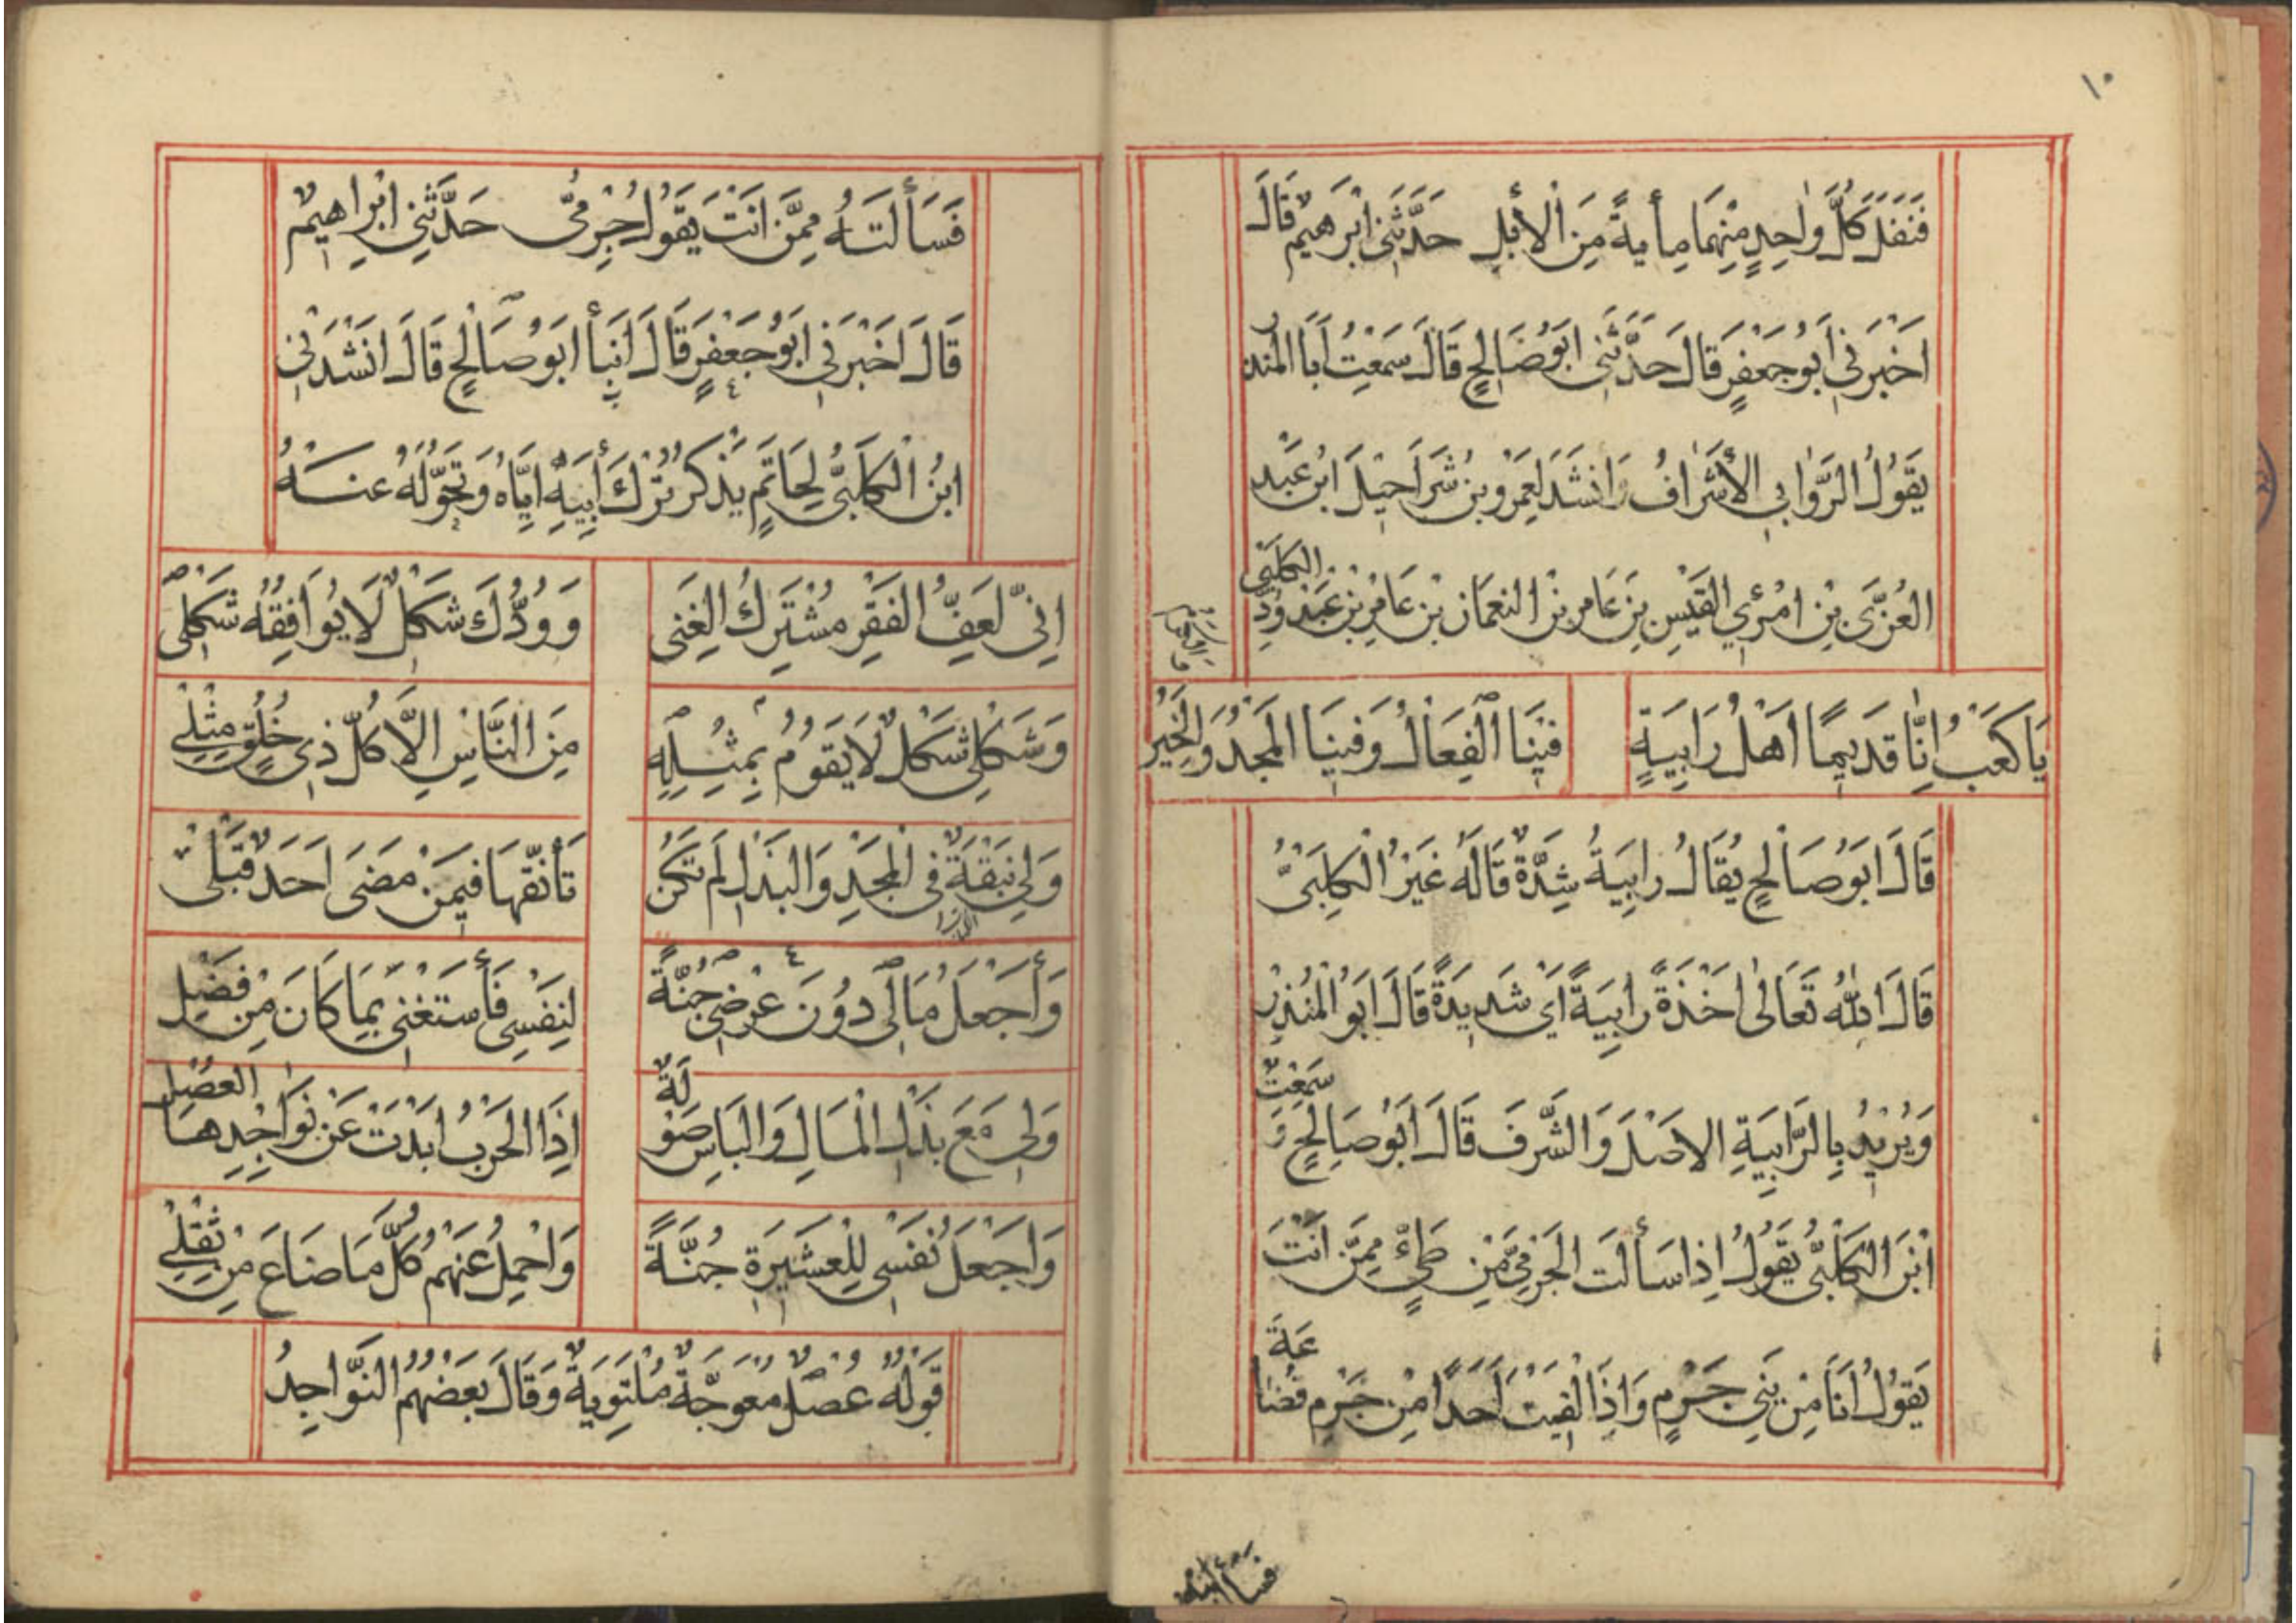 ١٠
فَنَفَلَ كُلَّ وٰاحِدٍ مِنْهُمَا مِأيةً مِنَ الْأبِلِ حَدَّثَنِى ابْرَهيمُ قَالَ
اَخْبَرَنِى اَبُو جَعْفَرٍ قَالَ حَدَّثَنِى ابَوُ صَالِحٍ قَالَ سَمِعْتُ اَبَا المنذر
يَقُولُ الرَّوٰابِى الْأشْرٰافُ وَانْشَدَ لِعَمْرِو بْنِ شَرَاحِيْلَ ابْنِ عَبْدِ
العُزَّى بْنِ امْرُئِ القَيْسِ بْنِ عَامِرِ بْنِ النعمَانِ بْنِ عَامِرِ بْنِ عَبْدِ وُدِّ الكَلْبَىِّ
يَا كَعْبُ اِنّٰا قَدِيمًا اَهْلُ رَابِيَةٍ فِيْنَا الْفِعَالُ وَفِينَا المَجْدُ وَالْخَيْرُ
قَالَ ابَوُ صَالِحٍ يُقَالُ رابِيَةُ شِدَّةٌ قَالَهُ غَيْرُ الْكَلبِىِّ
قَالَ اللّٰهُ تَعَالىٰ اَخْذَةً رابِيَةً اَىْ شَدِيدَةً قَالَ ابَوُ الْمُنْذِرْ
وَيُرْيْدُ بِالرَّابِيَةِ الاصْلَ وَالشَّرفَ قَالَ اَبَوُ صَالِحٍ وَ سَمِعْتُ
ابْنَ الكَلْبِىّ يَقُولُ اِذا سَألْتَ الْجَرْمِىَّ مِنْ طَيٍّ مِمَّنْ اَنْتَ
يَقُولُ اَنَا مِنْ بَنِى جَرْمٍ وَاِذَا لَقِيْتَ اَحَدًا مِنْ جَرْمِ قُضٰاعَةَ
فَسَألتَهُ
فَسَألتَهُ مِمَّنْ انْتَ يَقُولُ جِرْمىُّ حَدَّثَنِى ابْراهيمُ
قَالَ اَخْبَرَنِى اَبَوُ جَعْفَرٍ قَالَ اَنبأ ابَوُ صَالِحٍ قَالَ انْشَدَنِى
ابنُ الْكَلْبَىِّ لِحَاتَمٍ يَذْكُرُ تَرْكَ أبِيَهِ ايَّاهُ وَتَحَوُّلَهُ عَنْهُ
اِنِّى لَعَفُّ الفَقْرِ مُشْتَرِكُ الغِنَى وَوُدُّكَ شَكْلٌ لَا يُوَافِقُهُ شَكْلِى
وَشَكْلِى شَكْلٌ لَا يَقُومُ بِمِثْلِهِ مِنَ النَّاسِ الَّا كُلُّ ذِى خُلُقٍ مِثْلِى
وَلِى نَبْقَةٌ فى الْمَجْدِ وَالبَذْلِ لَم تَكُنْ تَأنّقَهَا فيمَنْ مَضَى اَحَدٌ قَبْلِى
وَأجْعَلُ مَالِى دُونَ عِرْضِى جُنَّةً لِنَفْسِى فَأسْتَغْنِى بِمَا كَانَ مِنْ فَضْلِ
وَلِى مَعَ بَذْلِ الْمَالِ وَالْبَاسِ صَوْلَةٌ اِذَا الحَرْبُ ابْدَتْ عَنْ نَوَاجِذِهَا العصْلِ
وَاَجْعَلُ نَفْسِى لِلْعَشِيَرَةِ جُنَّةً وَاحْمِلُ عَنْهُمْ كُلَّ مَا ضَاعَ مِنْ ثِقْلِى
قَوْلُهُ عُصْلٌ مُعْوَجَّةٌ مُلْتَوِيَةٌ وَقَالَ بَعْضُهُمُ النَّواجِذُ